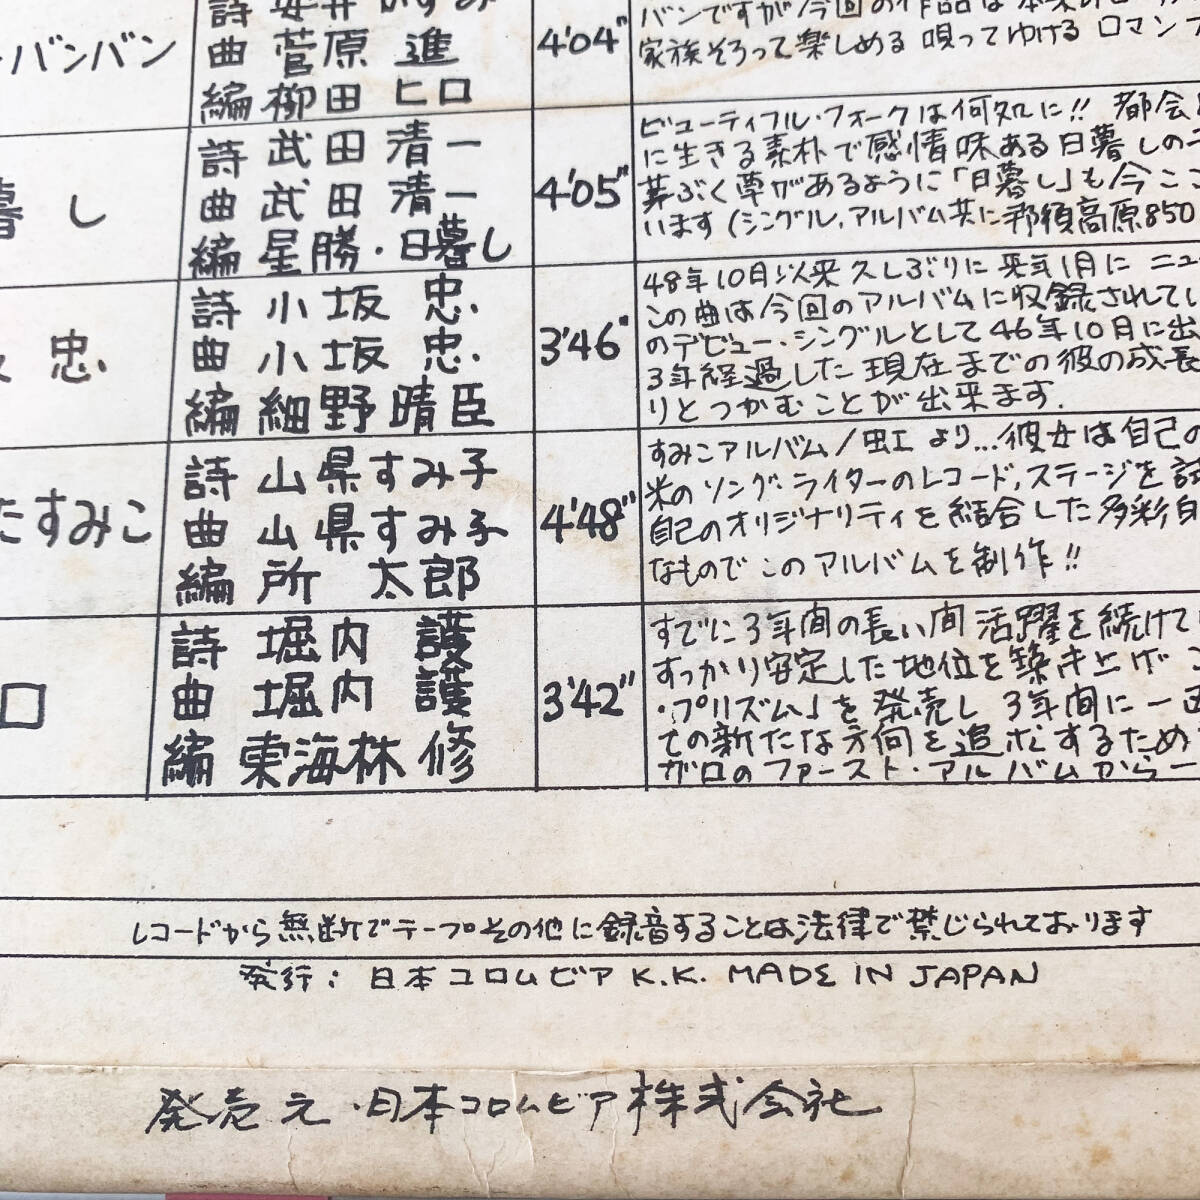 詩 安井かずみ
・バンバン 曲 菅原 進 4'04"
編 柳田 ヒロ
バンですが今回の作品は本来の
家族そろって楽しめる 唄ってゆける ロマン
暮し
詩 武田 清一
曲 武田 清一
編 星勝・日暮し
4'05"
ビューティフル・フォークは何処に!! 都会
に生きる素朴で感情味ある日暮しの
芽ぶく草があるように「日暮し」も今ここ
います(シングル,アルバム共に那須高原850
忠
詩 小坂 忠
曲 小坂 忠
編 細野晴臣
3'46"
48年10月以来久しぶりに来年1月に ニュ
この曲は今回のアルバムに収録されてい
のデビュー・シングルとして46年10月に出
3年経過した現在までの彼の成長
りとつかむことが出来ます.
たすみこ
詩 山県すみ子
曲 山県すみ子
編 所 太郎
4'48"
すみこアルバム/虹 より…彼女は自己の
米のソング・ライターのレコード,ステージを
自己のオリジナリティを結合した多彩
なものでこのアルバムを制作!!
ロ
詩 堀内 護
曲 堀内 護
編 東海林 修
3'42"
すでに3年間の長い間 活躍を続けて
すっかり安定した地位を築き上げ こ
・プリズム」を発売し 3年間に一
ての新たな方向を追求するため
ガロのファースト・アルバムから一
レコードから無断でテープその他に録音することは法律で禁じられております
発行: 日本コロムビア K.K. MADE IN JAPAN
発売元・日本コロムビア株式会社